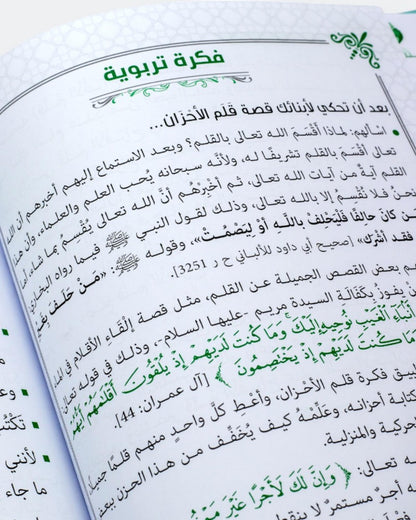 فكرة تربوية
بعد أن تحكي لأبنائك قصة قَلَم الأحْزان...
اسألهم: لماذا أَقْسَمَ اللـه تعالى بالقلـم؟ وبعـد الاستماع إليهـم أخبرهـم أن اللـه
تعالى أقْسَم بالقلم تشريفًا لـه، ولأنَّـه سبحانه يُحـب العلـم والعلمـاء، وأن هذا
القلم آيـةٌ مـن آيـات اللـه تعالى، ثـم أخبِرْهُـم أنَّ اللـه تعالى يُقْسِـم بمـا شاء، أما
نحن فـلا نُقْسِـمُ إلا باللـه تعالى، وذلك لقول النبـي ﷺ فيمـا رواه البخاري
من كانَ حالِفًا فَلْيَحْلِفْ باللَّـهِ أوْ لِيَصْمُتْ»، وقولـه ﷺ: «مَـنْ حَلَـفَ بِغَيْرِ
فقد أشْرَكَ» [صحيح أبي داود للألباني ح ر 3251].
بعض القصص الجميلـة عـن القلم، مثـل قصة إلْقَاء الأقلام في الماء
يفوز بكَفَالَـة السيدة مريـم -عليهـا السلام-، وذلـك في قولـه تعالى
أَنْبَاءِ الْغَيْبِ نُوحِيهِ إِلَيْكَ وَمَا كُنْتَ لَدَيْهِمْ إِذْ يُلْقُونَ أَقْلَامَهُمْ أَيُّهُمْ
مَا كُنْتَ لَدَيْهِمْ إِذْ يَخْتَصِمُونَ ﴾ [آل عمـران: 44].
فكرة قلـم الأحْـزان، وأعْـطِ كلَّ واحـدٍ منهـم قلمًـا جميلًا
كتابة أحزانـه، وعلِّمْـهُ كيـف يُخَفِّـف مـن هـذا الحـزن
الحركية والمنزلية.
تعالى: ﴿ وَإِنَّ لَكَ لَأَجْرًا غَيْرَ
أجـرٌ مستمـرٌّ لا
تَكْتُـ
لأنني
ما جاء